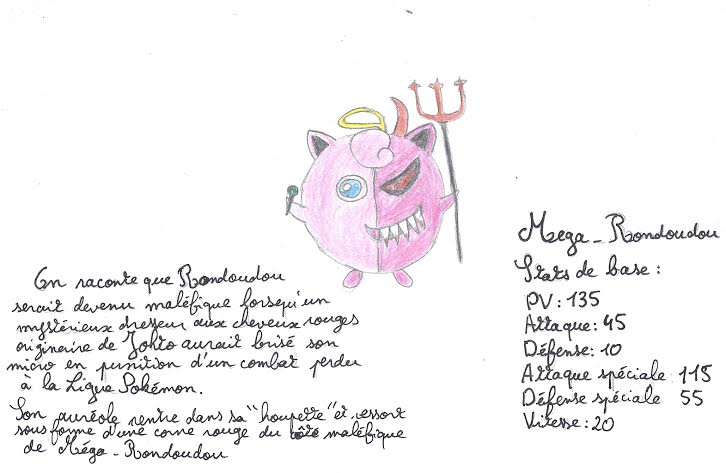 On raconte que Rondoudou
serait devenu maléfique lorsqu'un
mystérieux dresseur aux cheveux rouges
originaire de Johto aurait brisé son
micro en punition d'un combat perdu
à la Ligue Pokémon.
Son auréole rentre dans sa "houpette" et ressort
sous forme d'une corne rouge du côté maléfique
de Méga-Rondoudou
Mega-Rondoudou
Stats de base :
PV : 135
Attaque : 45
Défense : 10
Attaque spéciale 115
Défense spéciale 55
Vitesse : 20